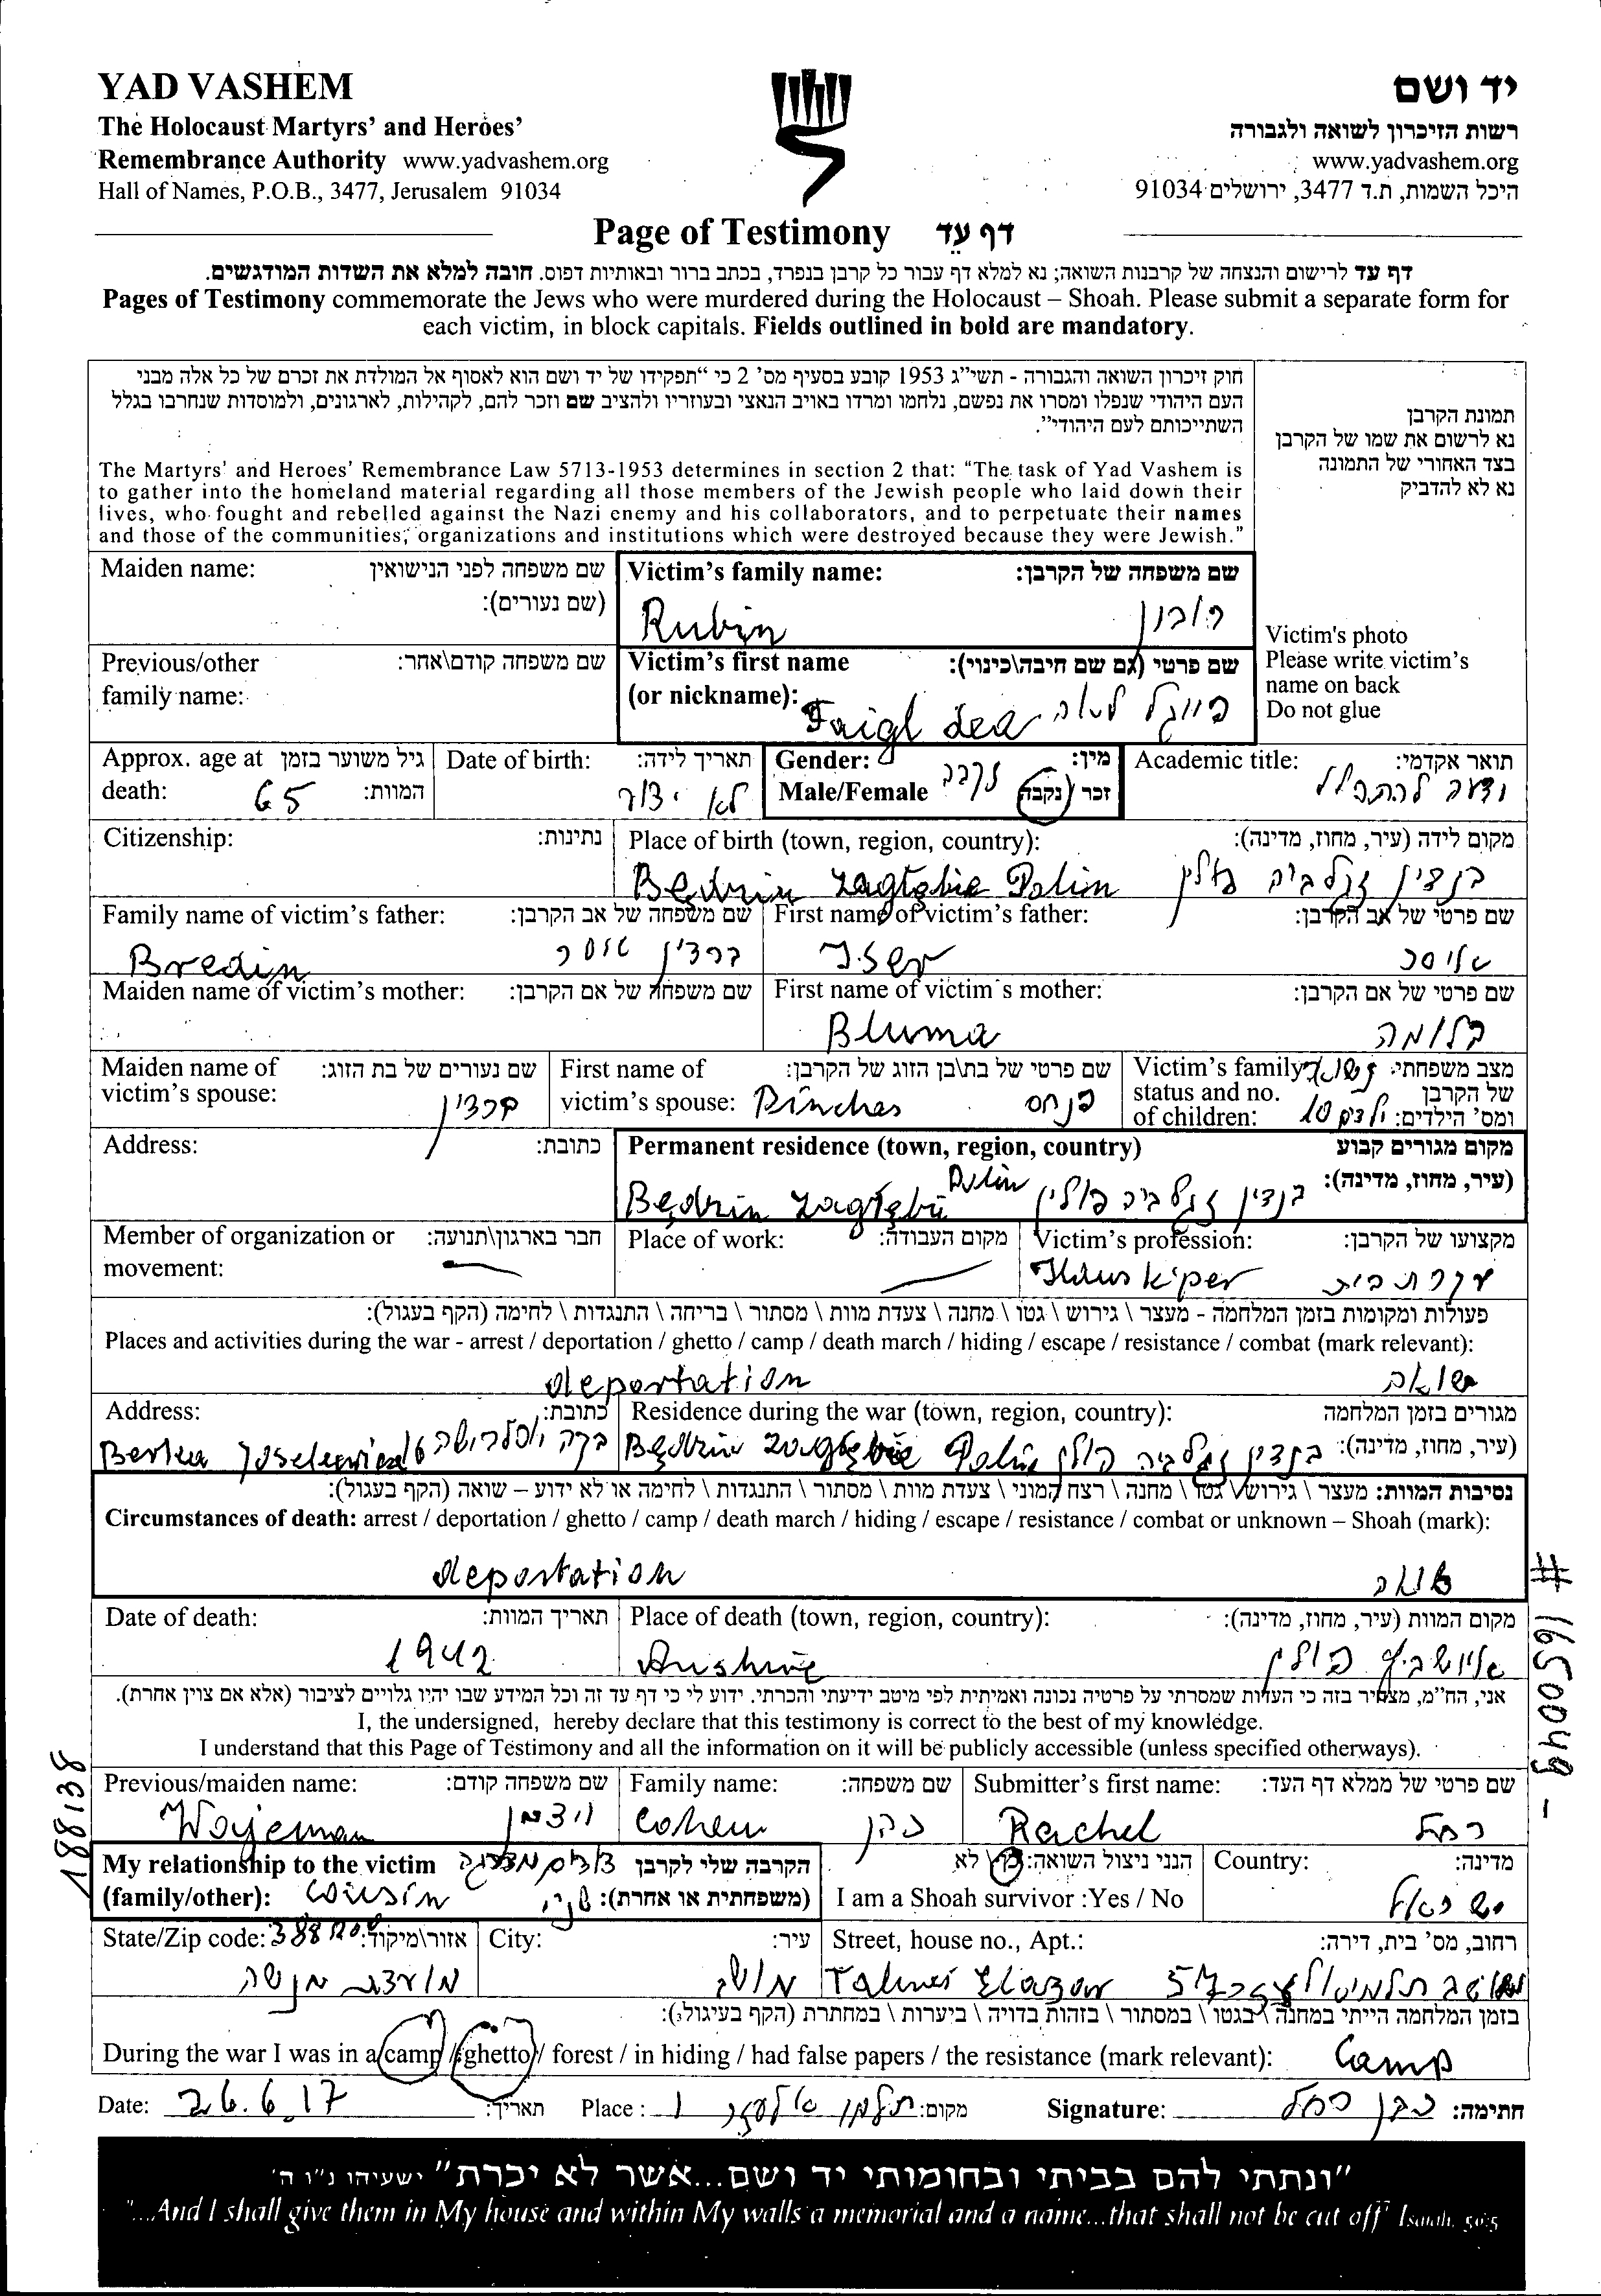 YAD VASHEM
The Holocaust Martyrs' and Heroes'
Remembrance Authority www.yadvashem.org
Hall of Names, P.O.B., 3477, Jerusalem 91034
יד ושם
רשות הזיכרון לשואה ולגבורה
www.yadvashem.org
היכל השמות, ת.ד 3477, ירושלים 91034
Page of Testimony דף עֵד
דף עד לרישום והנצחה של קרבנות השואה; נא למלא דף עבור כל קרבן בנפרד, בכתב ברור ובאותיות דפוס. חובה למלא את השדות המודגשים.
Pages of Testimony commemorate the Jews who were murdered during the Holocaust – Shoah. Please submit a separate form for
each victim, in block capitals. Fields outlined in bold are mandatory.
חוק זיכרון השואה והגבורה - תשי"ג 1953 קובע בסעיף מס' 2 כי "תפקידו של יד ושם הוא לאסוף אל המולדת את זכרם של כל אלה מבני
העם היהודי שנפלו ומסרו את נפשם, נלחמו ומרדו באויב הנאצי ובעוזריו ולהציב שם וזכר להם, לקהילות, לארגונים, ולמוסדות שנחרבו בגלל
השתייכותם לעם היהודי".
The Martyrs' and Heroes' Remembrance Law 5713-1953 determines in section 2 that: "The task of Yad Vashem is
to gather into the homeland material regarding all those members of the Jewish people who laid down their
lives, who fought and rebelled against the Nazi enemy and his collaborators, and to perpetuate their names
and those of the communities, organizations and institutions which were destroyed because they were Jewish."
תמונת הקרבן
נא לרשום את שמו של הקרבן
בצד האחורי של התמונה
נא לא להדביק
Victim's photo
Please write victim's
name on back
Do not glue
Maiden name: שם משפחה לפני הנישואין
(שם נעורים):
Victim's family name: שם משפחה של הקרבן:
Rubin רובין
Previous/other שם משפחה קודם\אחר:
family name:
Victim's first name שם פרטי (גם שם חיבה\כינוי):
(or nickname): Faigl Lea פייגל לאה
Approx. age at גיל משוער בזמן
death: 65 המוות:
Date of birth: תאריך לידה:
לא ידוע
Gender: מין:
Male/Female נקבה זכר / נקבה
Academic title: תואר אקדמי:
ודעה להתפלל
Citizenship: נתינות:
Place of birth (town, region, country): מקום לידה (עיר, מחוז, מדינה):
Będzin Zagłębie Polin בנדין זגלביה פולין
Family name of victim's father: שם משפחה של אב הקרבן:
Bredin ברדין איסר
First name of victim's father: שם פרטי של אב הקרבן:
Iser איסר
Maiden name of victim's mother: שם משפחה של אם הקרבן:
First name of victim's mother: שם פרטי של אם הקרבן:
Bluma בלומה
Maiden name of שם נעורים של בת הזוג:
victim's spouse: ברדין
First name of שם פרטי של בת\בן הזוג של הקרבן:
victim's spouse: Pinches פנחס
Victim's family מצב משפחתי: נשואה
status and no. של הקרבן
of children: ומס' הילדים: 10 ילדים
Address: כתובת:
Permanent residence (town, region, country) מקום מגורים קבוע
(עיר, מחוז, מדינה):
Będzin Zagłębie Polin בנדין זגלביה פולין
Member of organization or חבר בארגון\תנועה:
movement:
Place of work: מקום העבודה:
Victim's profession: מקצועו של הקרבן:
Hauskiper עקרת בית
פעולות ומקומות בזמן המלחמה - מעצר \ גירוש \ גטו \ מחנה \ צעדת מוות \ מסתור \ בריחה \ התנגדות \ לחימה (הקף בעגול):
Places and activities during the war - arrest / deportation / ghetto / camp / death march / hiding / escape / resistance / combat (mark relevant):
deportation שואה
Address: כתובת:
Berka Joselewicza 6
Residence during the war (town, region, country): מגורים בזמן המלחמה
(עיר, מחוז, מדינה):
Będzin Zagłębie Polin בנדין זגלביה פולין
נסיבות המוות: מעצר \ גירוש \ גטו \ מחנה \ רצח המוני \ צעדת מוות \ מסתור \ התנגדות \ לחימה או לא ידוע – שואה (הקף בעגול):
Circumstances of death: arrest / deportation / ghetto / camp / death march / hiding / escape / resistance / combat or unknown – Shoah (mark):
deportation שואה
Date of death: תאריך המוות:
1942
Place of death (town, region, country): מקום המוות (עיר, מחוז, מדינה):
אושביץ פולין
אני, הח"מ, מצהיר בזה כי העדות שמסרתי על פרטיה נכונה ואמיתית לפי מיטב ידיעתי והכרתי. ידוע לי כי דף עד זה וכל המידע שבו יהיו גלויים לציבור (אלא אם צוין אחרת).
I, the undersigned, hereby declare that this testimony is correct to the best of my knowledge.
I understand that this Page of Testimony and all the information on it will be publicly accessible (unless specified otherways).
Previous/maiden name: שם משפחה קודם:
Wajeman ויצמן
Family name: שם משפחה:
Cohen כהן
Submitter's first name: שם פרטי של ממלא דף העד:
Rachel רחל
My relationship to the victim הקרבה שלי לקרבן
(family/other): cousin (משפחתית או אחרת):
הנני ניצול השואה: כן / לא
I am a Shoah survivor :Yes / No
Country: מדינה:
ישראל
State/Zip code: אזור\מיקוד:
City: עיר:
Street, house no., Apt.: רחוב, מס' בית, דירה:
Talmei Elazar
בזמן המלחמה הייתי במחנה \ בגטו \ במסתור \ בזהות בדויה \ ביערות \ במחתרת (הקף בעיגול):
During the war I was in a camp / ghetto / forest / in hiding / had false papers / the resistance (mark relevant): Camp
Date: 26.6.17 תאריך: Place : תלמי אלעזר מקום: Signature: כהן רחל חתימה:
"ונתתי להם בביתי ובחומותי יד ושם...אשר לא יכרת" ישעיהו נ"ו ה'
"...And I shall give them in My house and within My walls a memorial and a name...that shall not be cut off" Isaiah, 56:5
188138
# 1650049 -